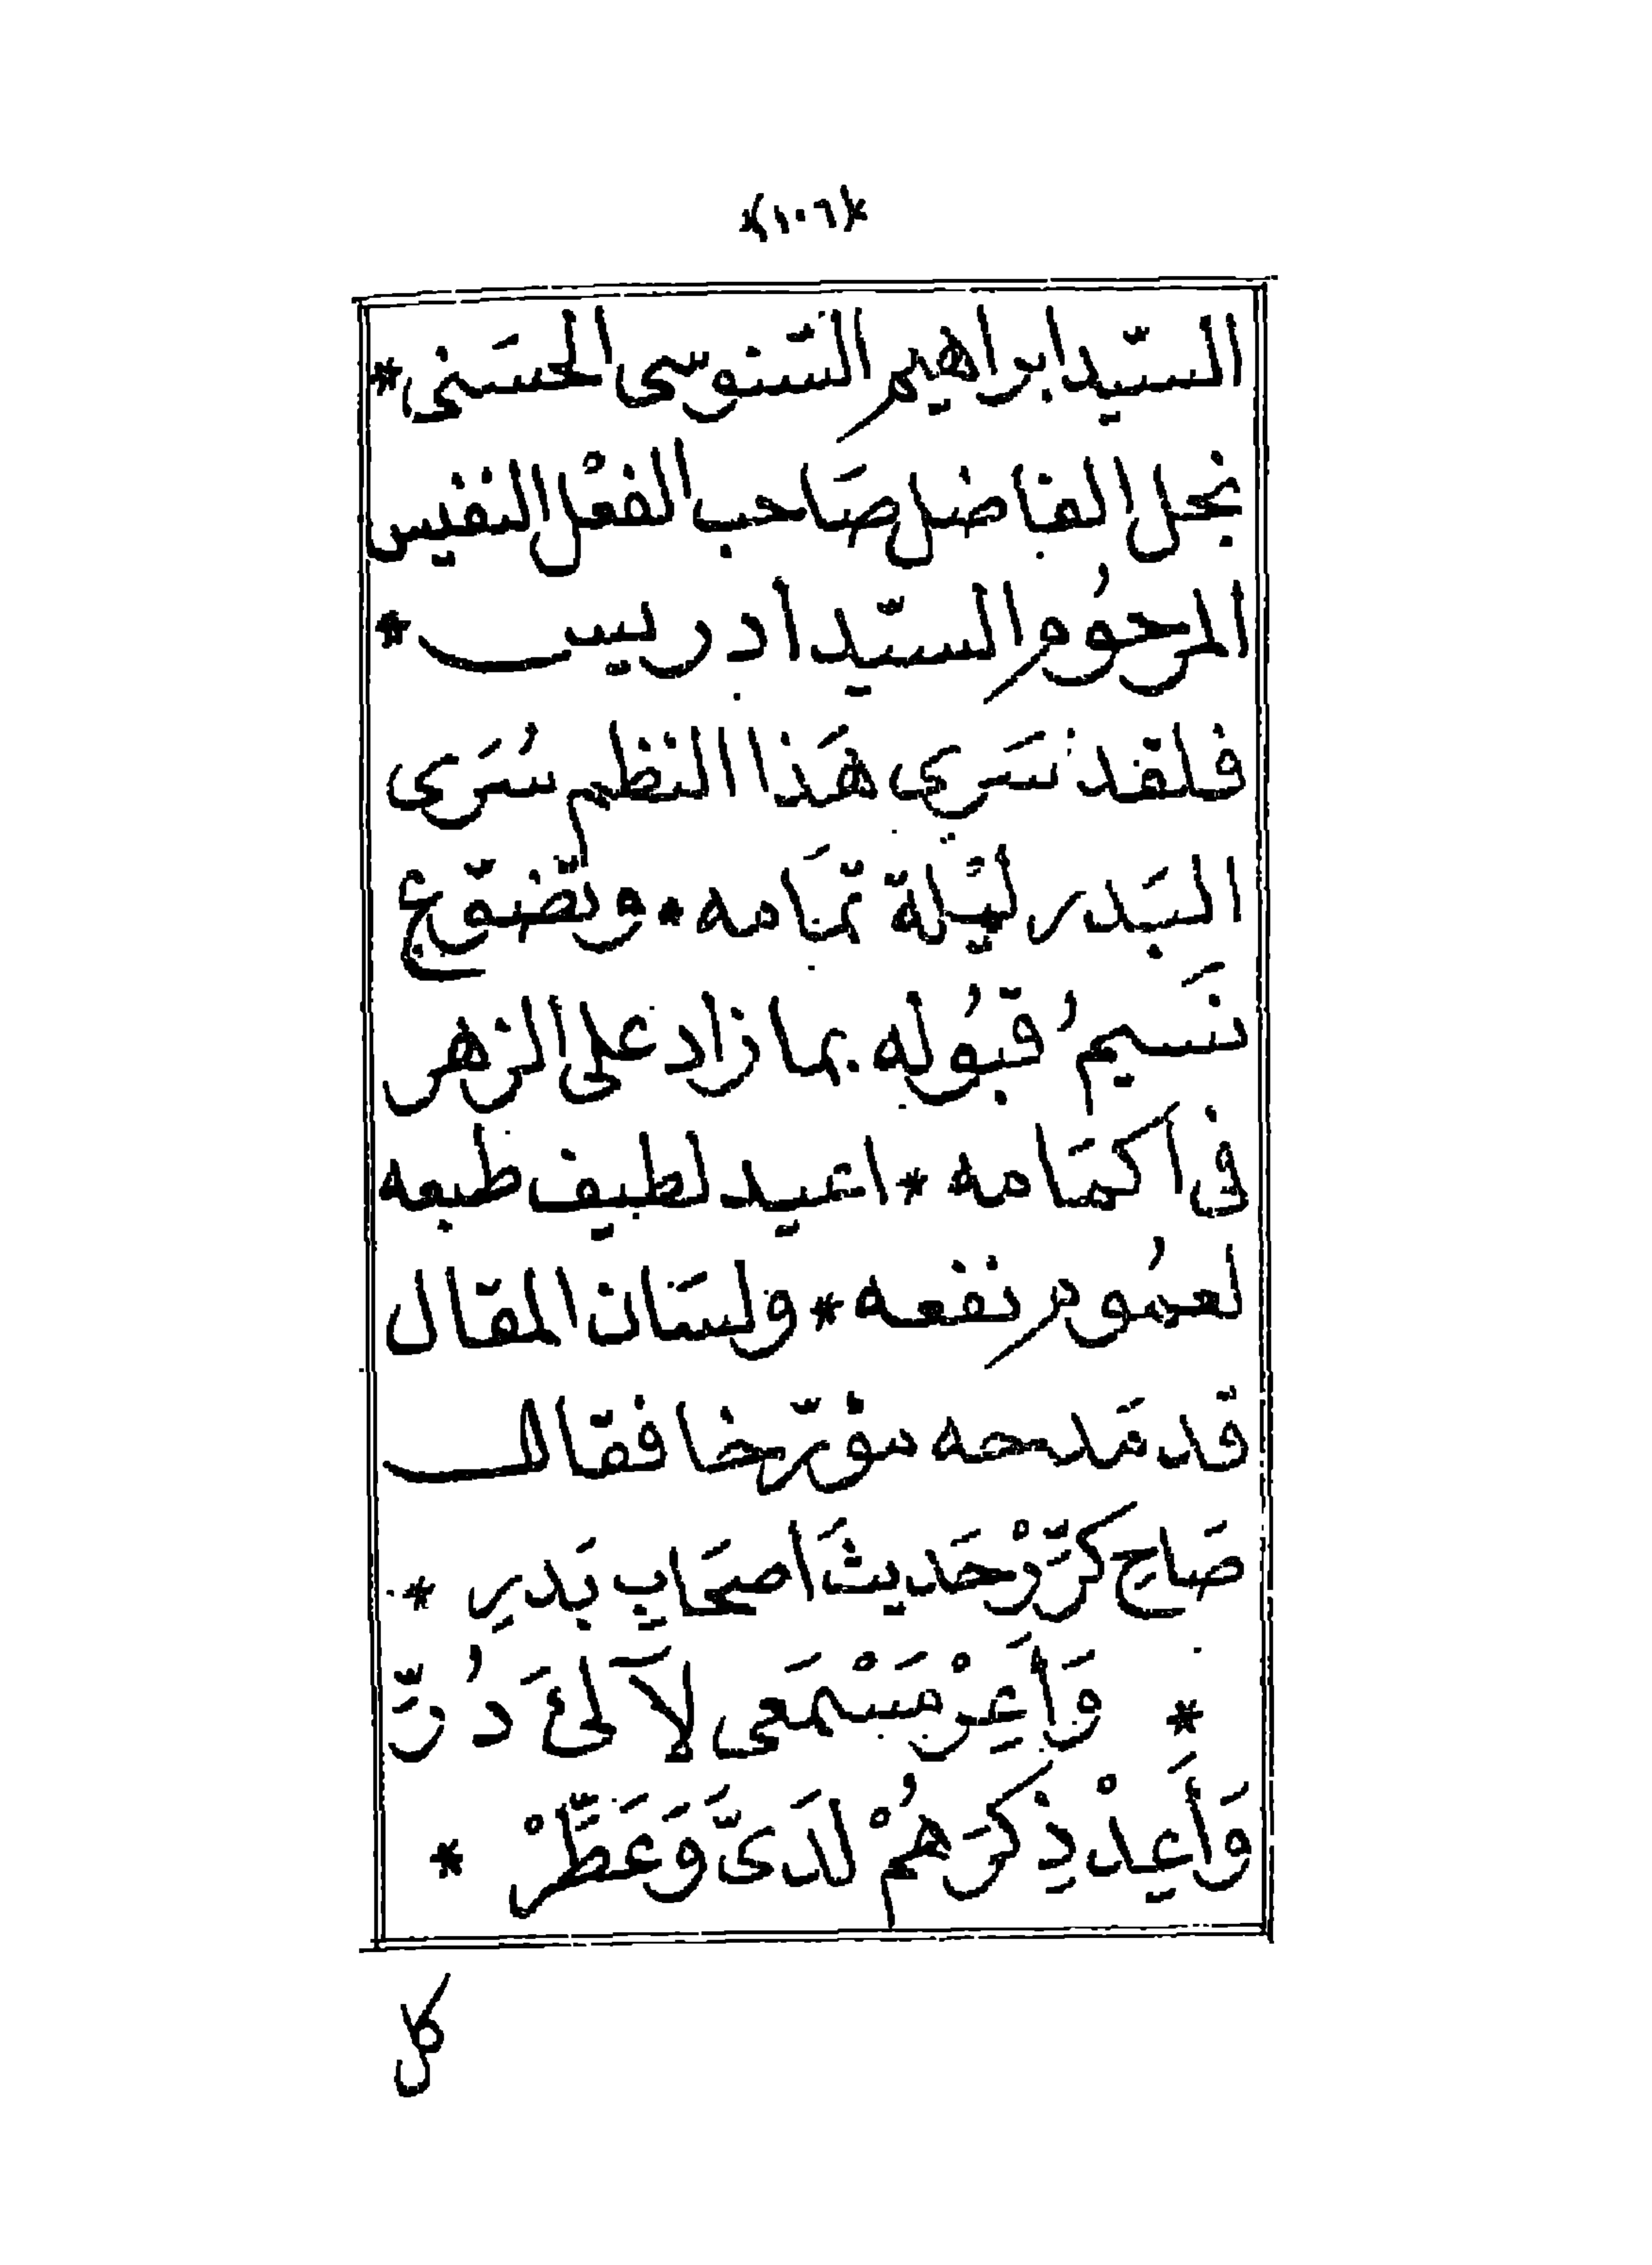 *(١٠٦)*
السّيد ابراهيم السّنوسى الحسَنى *
نجل الفاضل صَاحب الفعْل النفيس
المرحُوم السيّد ادريس *
فلقد سَرى هَذا النظم سُرَى
البَدر ليَلة تمَامه * وتضوّع
نَسيمُ قبُوله بما زاد على الزهر
فى اكمَامه * اعيد لطيف طبعه
لعمُوم نفعه * ولسَان المقال
قد مَدحه مؤرّخا فقال
صَاحِ كرِّرْ حَديثَ اصحَابِ بَدرِ *
* وَأَعِرْ مَسْمَعى لآلئَ دُرِّ
وَأَعِدْ ذِكرَهُمْ لَدَىَّ وَعَطِّرْ *
كل